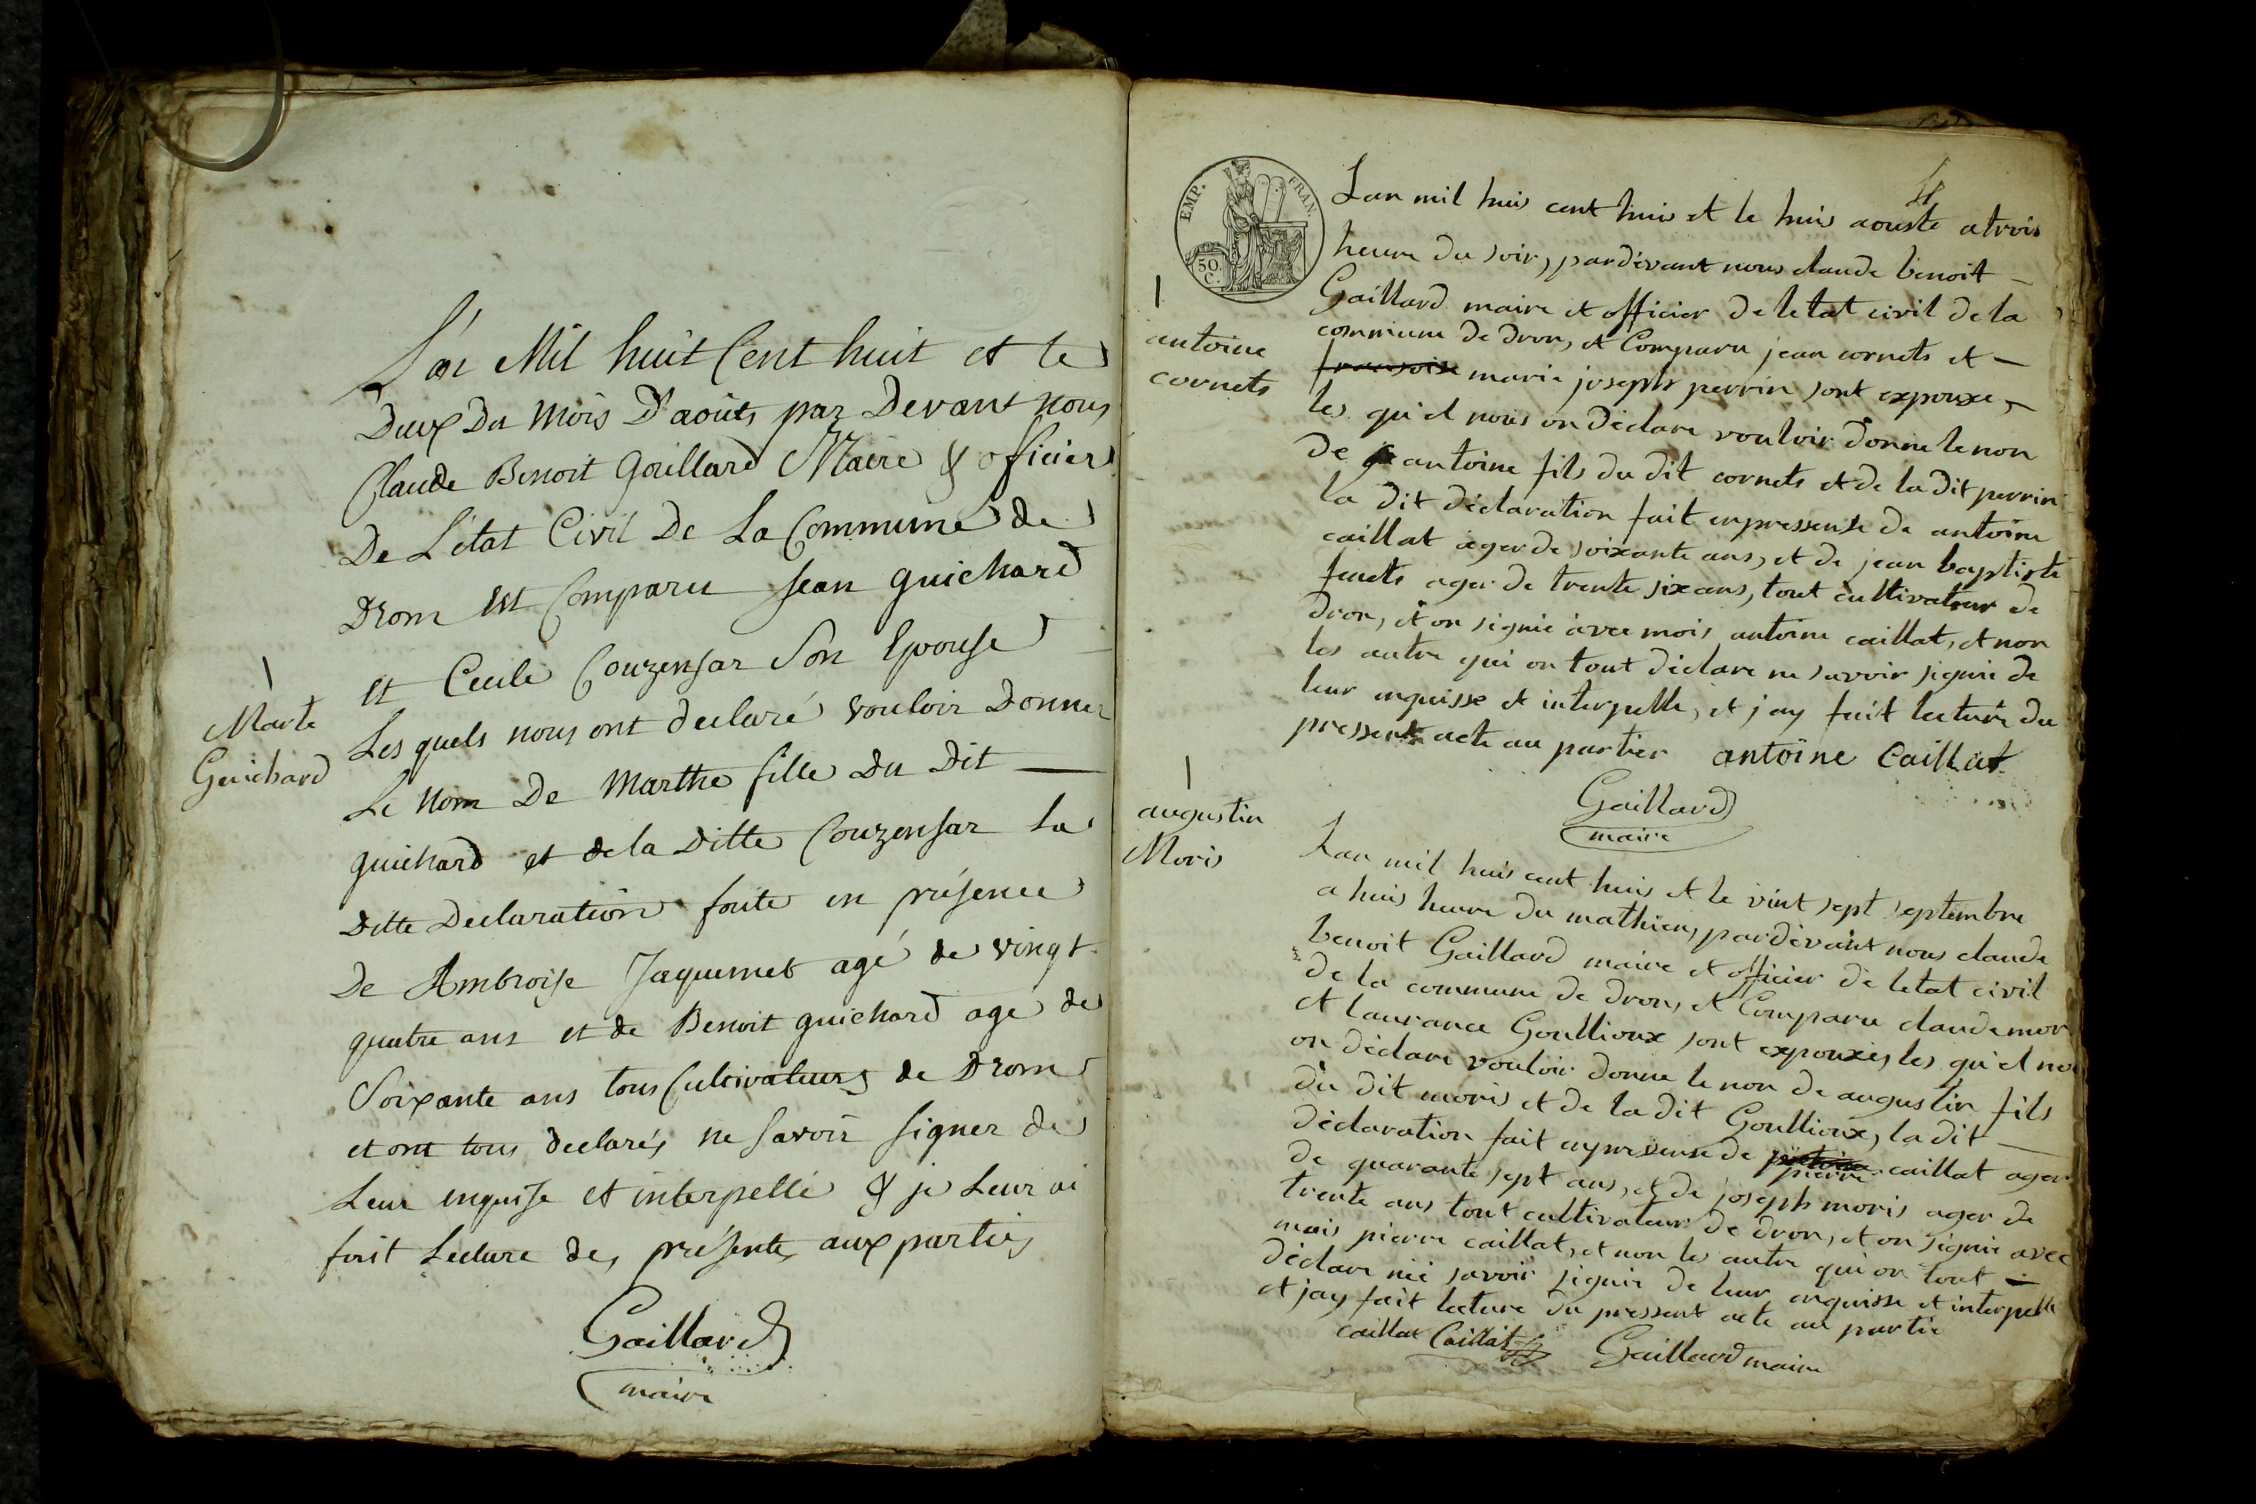 L'an Mil huit Cent huit et le
Deux Du Mois D'août, par Devant nous
Claude Benoit Gaillard Maire & officier
De L'état Civil De La Commune de
Drom Est Comparu Jean guichard
et Cecile Couzensar Son Epouse
Marte
Guichard
Les quels nous ont declaré vouloir Donner
Le Nom De Marthe fille Du Dit
guichard et de la Ditte Couzensar La
ditte Declaration faite en présence
De Ambroise Jaquemet agé de vingt
quatre ans et de Benoit guichard age de
Soixante ans tous Cultivateurs de Drom
et ont tous declarés ne Savoir Signer de
Leur enquise et interpellé & je Leur ai
fait Lecture des présentes aux parties
Gaillard
maire
4
EMP. FRAN.
50.
C.
Lan mil huis cent huis et le huis aouste a trois
heure du soir, pardevant nous claude benoit
Gaillard maire et officier de letat civil de la
commune de dron, et Comparu jean cornets et
antoine
cornets
fransoise marie joseph perrin sont expouxe,
les qu'el nous on déclare vouloir donne le non
de antoine fils du dit cornets et de la dit perrin
la dit déclaration fait enpressense de antoine
caillat ager de soixante ans, et de jean baptiste
ager de trente six ans, tout cultivateur de
dron, et on signié avec mois antoine caillat, et non
les autre qui on tout déclare ne savoir signie de
leur enquisse et interpelle, et j'ay fait lecture du
pressent acte au partier antoine Caillat
Gaillard
maire
augustin
Moris
Lan mil huis cent huis et le vint sept septembre
a huis heure du mathien, pardevant nous claude
benoit Gaillard maire et officier de letat civil
de la commune de dron, et Comparu claude mor
et laurance Goullioux sont expouxes, les qu'el no
on déclare vouloir donne le non de augustin fils
du dit moris et de la dit Goullioux, la dit
déclaration fait enpressense de pierre caillat ager
de quarante sept ans, et de joseph moris ager de
trente ans tout cultivateur de dron, et on signie avec
mois pierre caillat, et non les autre qui on tout
déclare nié savoir signie de leur enquisse et interpelle
et jay fait lecture du pressent acte au partie
caillat Caillat Gaillard maire